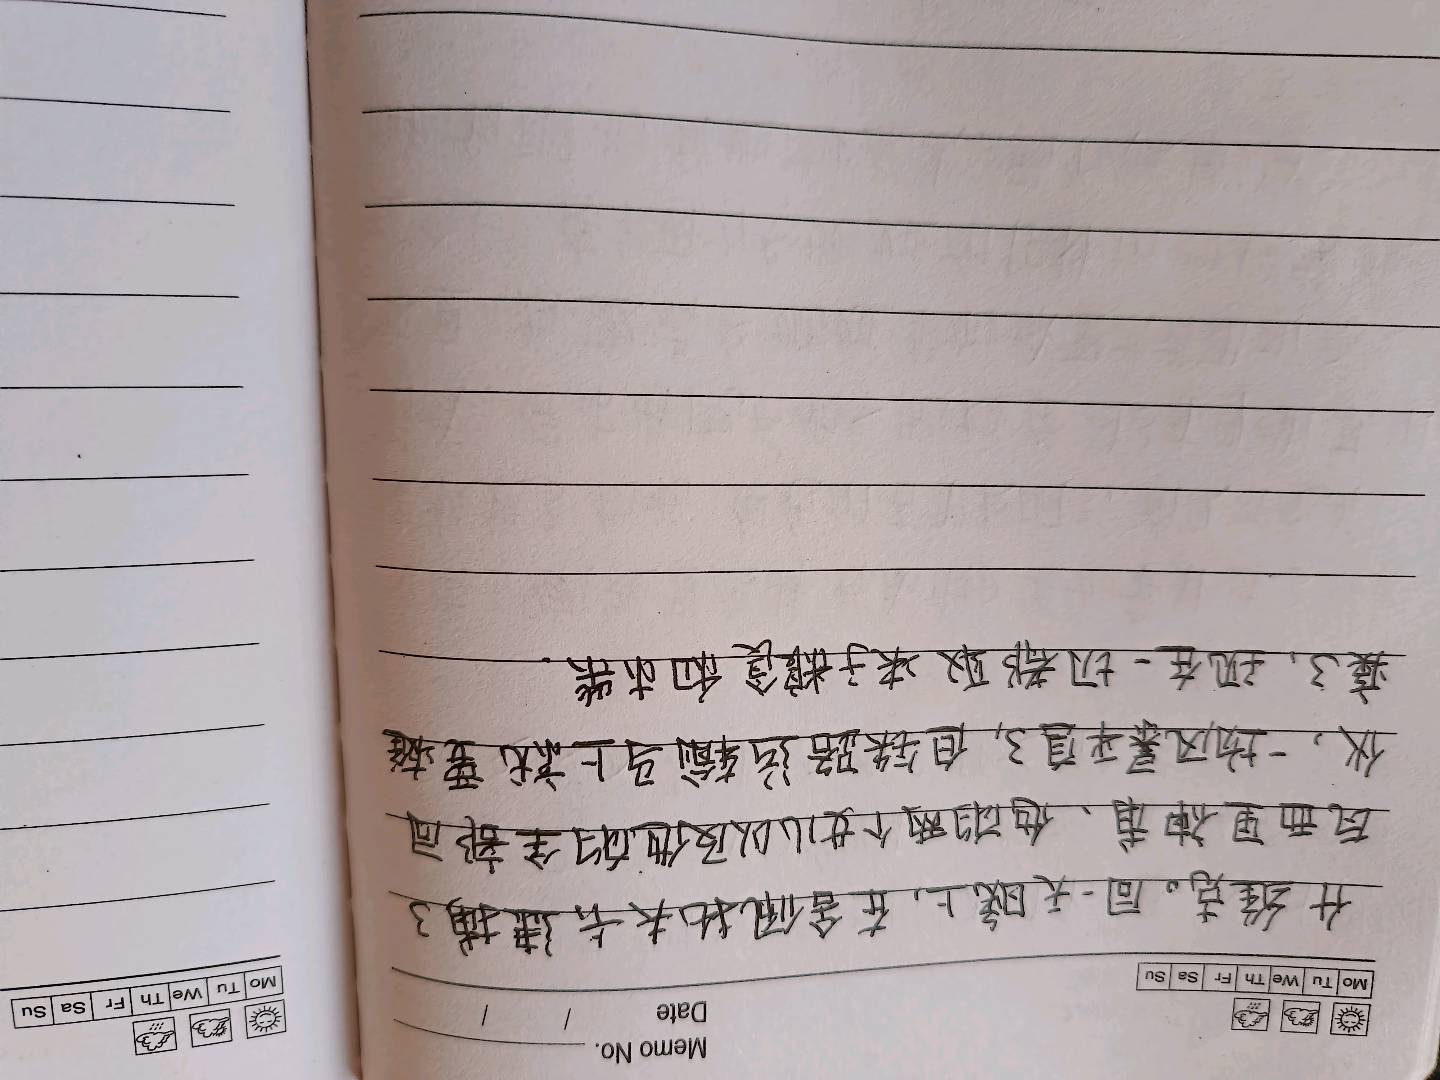 Memo No.
Date / /
Mo Tu We Th Fr Sa Su
什维克。同一天晚上,在舍佩托夫卡逮捕了
瓦西里神甫、他的两个女儿以及他的全部同
伙,一场风暴平息了,但铁路运输马上就要瘫
痪了,现在一切都取决于粮食和木柴.
Mo Tu We Th Fr Sa Su